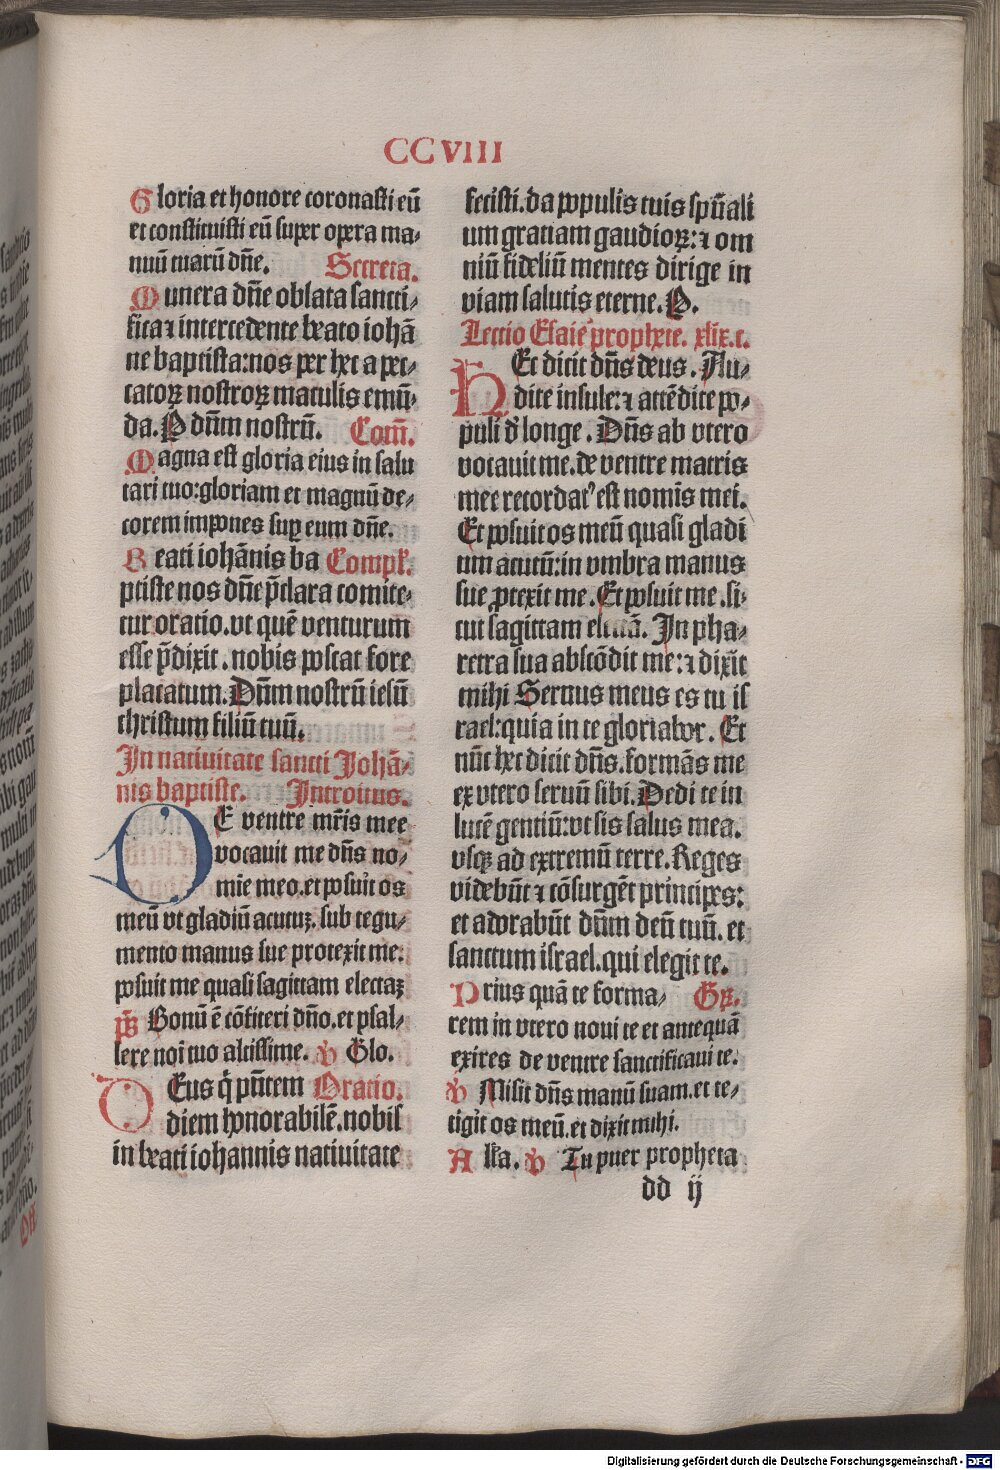 CCVIII
Gloria et honore coronasti eū
et constituisti eū super opera ma-
nuū tuarū dn̄e. Secreta.
Munera dn̄e oblata sancti-
fica ⁊ intercedente beato iohā
ne baptista: nos per hec a pec-
catoꝝ nostroꝝ maculis emū-
da. P dn̄m nostrū. Com̄.
Magna est gloria eius in salu
tari tuo: gloriam et magnū de-
corem impones sup̱ eum dn̄e.
Beati iohānis ba Compl̄.
ptiste nos dn̄e p̄clara comite-
tur oratio. vt quē venturum
esse p̄dixit. nobis poscat fore
placatum. Dn̄m nostrū iesū
christum filiū tuū.
In natiuitate sancti Johā-
nis baptiste. Introitus.
DE ventre mr̄is mee
vocauit me dn̄s no-
mie meo. et posuit os
meū vt gladiū acutuꝫ. sub tegu-
mento manus sue protexit me:
posuit me quasi sagittam electaꝫ
ps̄ Bonū ē cōfiteri dn̄o. et psal-
lere noī tuo altissime. ℣ Glo.
DEus q̇ pn̄tem Oratio.
diem honorabilē. nobis
in beati iohannis natiuitate
fecisti. da populis tuis spūali
um gratiam gaudioꝝ: ⁊ om
niū fideliū mentes dirige in
viam salutis eterne. P.
Lectio Esaie prophete. xlix. c.
HEc dicit dn̄s deus. Au-
dite insule: ⁊ attēdite po-
puli d' longe. Dn̄s ab vtero
vocauit me. de ventre matris
mee recordat' est nomīs mei.
Et posuit os meū quasi gladi
um acutū: in vmbra manus
sue ꝓtexit me. Et posuit me. si-
cut sagittam electā. In pha-
retra sua abscōdit me: ⁊ dix̄it
mihi Seruus meus es tu is
rael: quia in te gloriabor. Et
nūc hec dicit dn̄s. formās me
ex vtero seruū sibi. Dedi te in
lucē gentiū: vt sis salus mea.
vsqꝫ ad extremū terre. Reges
videbūt ⁊ cōsurgēt principes:
et adorabūt dn̄m deū tuū. et
sanctum israel. qui elegit te.
Prius quā te forma- Gr̄.
rem in vtero noui te et antequā
exires de ventre sanctificaui te.
℣ Misit dn̄s manū suam. et te-
tigit os meū. et dixit mihi.
Alla. ℣ Tu puer propheta
dd ij
Digitalisierung gefördert durch die Deutsche Forschungsgemeinschaft - DFG